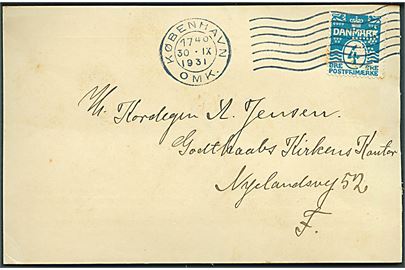 KØBENHAVN
7740
30·IX
1931
OMK.
DANMARK
4
ØRE ØRE
POSTFRIMÆRKE
Hr. Kordegn A. Jensen.
Godthaabs Kirkens Kontor
Nyelandsvej 52
F.